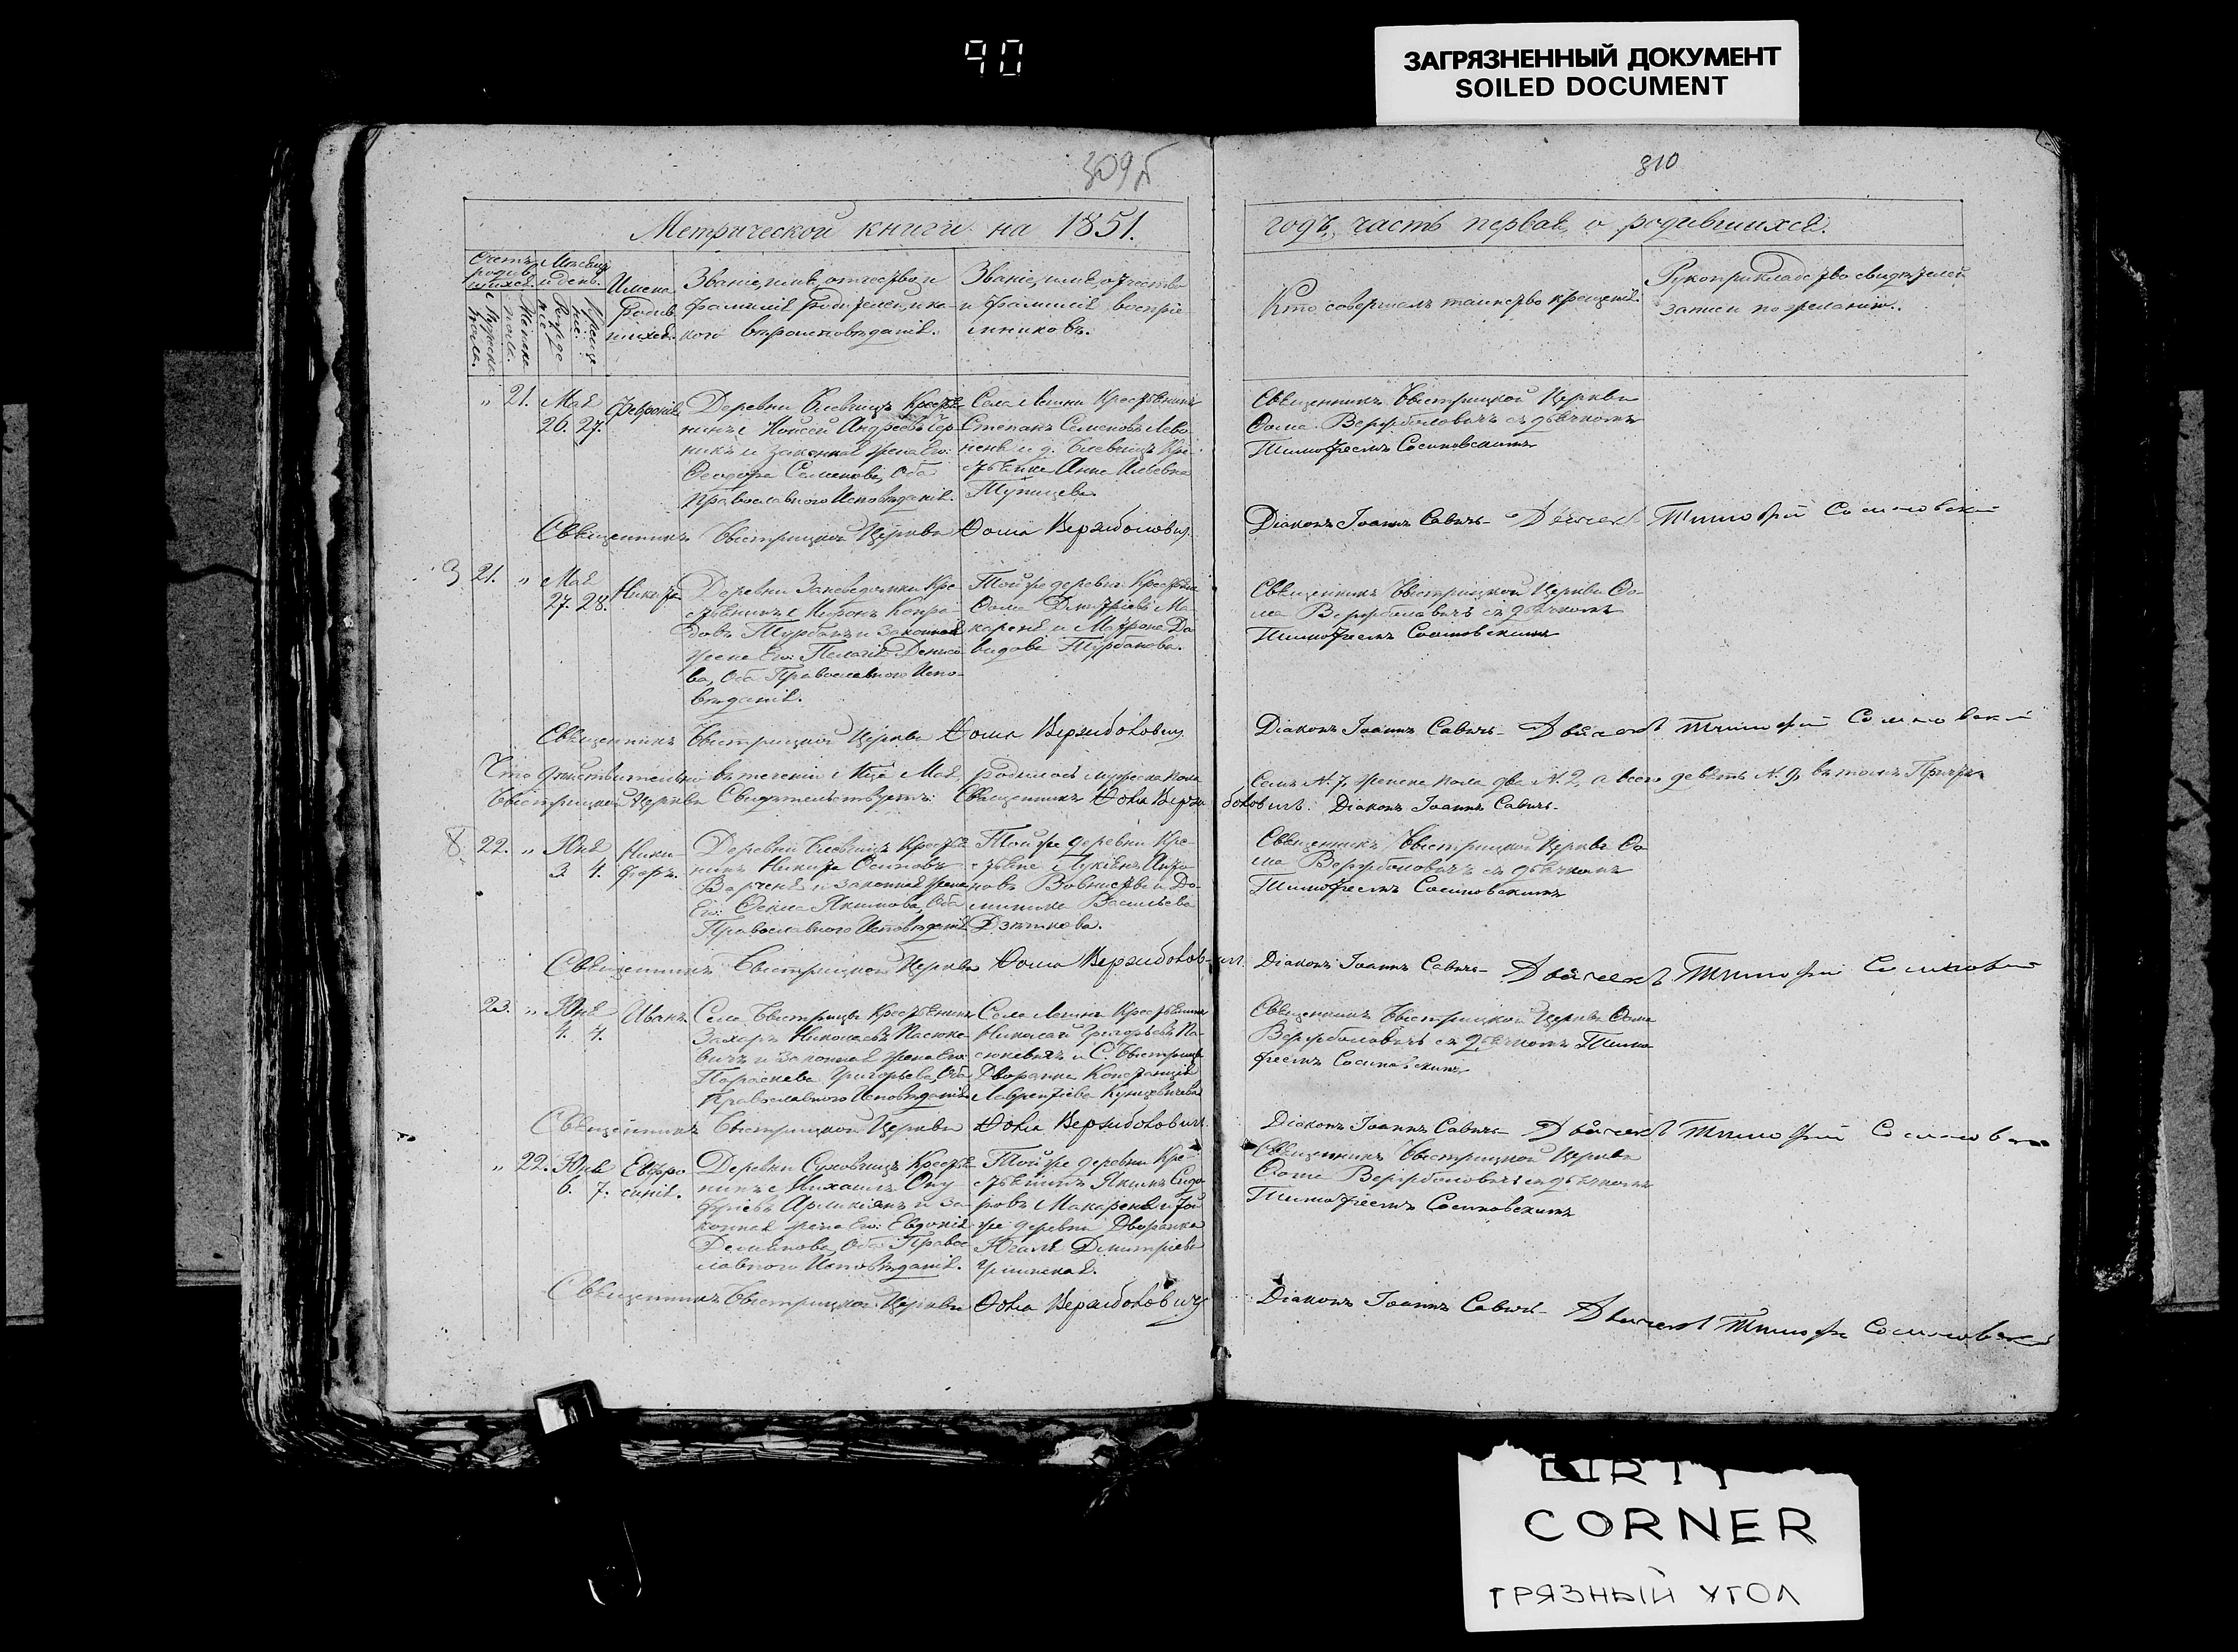 90
ЗАГРЯЗНЕННЫЙ ДОКУМЕНТ
SOILED DOCUMENT
309б
310
Метрической книги на 1851.
годъ, часть первая, о родившихся.
Счетъ родив шихся.
Мѣсяцъ и день.
Имена Родив шихся.
Званіе, имя, отчество и
фамилія Родителей, и ка-
кого вѣроисповѣданія.
Званіе, имя, отчество
и фамилія воспріе
мниковъ.
Кто совершалъ таинство крещенія.
Рукоприкладство свидѣтелей
записи по желанію.
Мужска пола.
Женска пола.
Рожде ніе
Креще ніе.
" 21. Мая 26. 27.
Февронія
Деревни Крестья
нинъ Моисей Андреевъ
никъ и законная жена Его
Феодора Семенова, Оба
Православного Исповѣданія.
Села Крестьянинъ
Степанъ Семеновъ Лево
и д. Кре
стьянка Анна Ильевна
Священникъ Быстрицкой Церкви
Ѳома Вержболовичъ съ дьячкомъ
Тимофеемъ Сосиновскимъ
Священникъ Быстрицкой Церкви Ѳома Вержболовичъ
Діаконъ Іоаннъ Савичъ Дьячекъ Тимофей Сосиновский
3 21. " Мая 27. 28.
Никита
Деревни Заповедники Кре
стьянинъ Миронъ Конра
довъ Турбанъ и законная
жена Его Пелагія Денисо
ва, Оба Православного Испо-
вѣданія.
Той же деревни Крестьяне
Ѳома Дмитріевъ Ма
кареня и Матрона Да
видова Турбанова.
Священникъ Быстрицкой Церкви Ѳо-
ма Вержболовичъ съ дьячкомъ
Тимофеемъ Сосиновскимъ
Священникъ Быстрицкой Церкви Ѳома Вержболовичъ
Діаконъ Іоаннъ Савичъ Дьячекъ Тимофей Сосиновский
Что дѣйствительно въ теченіи Мця Мая, родилось мужеска пола
Семь №. 7, женска пола два №. 2, а всего девять №. 9, въ томъ Причтъ
Быстрицкой Церкви Свидѣтельствуетъ: Священникъ Ѳома Вержболовичъ. Діаконъ Іоаннъ Савичъ
8 22. " Юня 3. 4.
Ники форъ.
Деревни Крестья
нинъ Никита Осиповъ
и законная жена
Его Ѳекла Якимова, Оба
Православного Исповѣданія
Той же деревни Кре-
стьяне Лукіянъ
новъ и До-
миника Васильева
Священникъ Быстрицкой Церкви Ѳо
ма Вержболовичъ съ дьячкомъ
Тимофеемъ Сосиновскимъ
Священникъ Быстрицкой Церкви Ѳома Вержболовичъ
Діаконъ Іоаннъ Савичъ Дьячекъ Тимофей Сосиновский
23. " Юня 4. 4.
Иванъ
Села Быстрицы Крестьянинъ
Захарій Николаевъ Пасюке
вичъ и законная жена Его
Параскева Григорьева, Оба
Православного Исповѣданія
Села Крестьянинъ
Николай Григорьевъ Па-
сюкевичъ и С. Быстрицы
Дворянка Констанція
Лаврентіева Кунцевичева
Священникъ Быстрицкой Церкви Ѳома
Вержболовичъ съ дьячкомъ Тимо
феемъ Сосиновскимъ
Священникъ Быстрицкой Церкви Ѳома Вержболовичъ
Діаконъ Іоаннъ Савичъ Дьячекъ Тимофей
" 22. Юня 6. 7.
Евфро синія.
Деревни Суховщицъ Крестья
нинъ Михаилъ Ону
фріевъ и за-
конная жена Его Евдокія
Демьянова, Оба Правос
лавного Исповѣданія.
Той же деревни Кре-
стьянинъ Якимъ Сидо
ровъ Макареня и той
же деревни Дворянка
Дмитріева
Священникъ Быстрицкой Церкви
Ѳома Вержболовичъ съ дьячкомъ
Тимофеемъ Сосиновскимъ
Священникъ Быстрицкой Церкви Ѳома Вержболовичъ
Діаконъ Іоаннъ Савичъ Дьячекъ Тимофей Сосиновский
DIRTY
CORNER
ГРЯЗНЫЙ УГОЛ